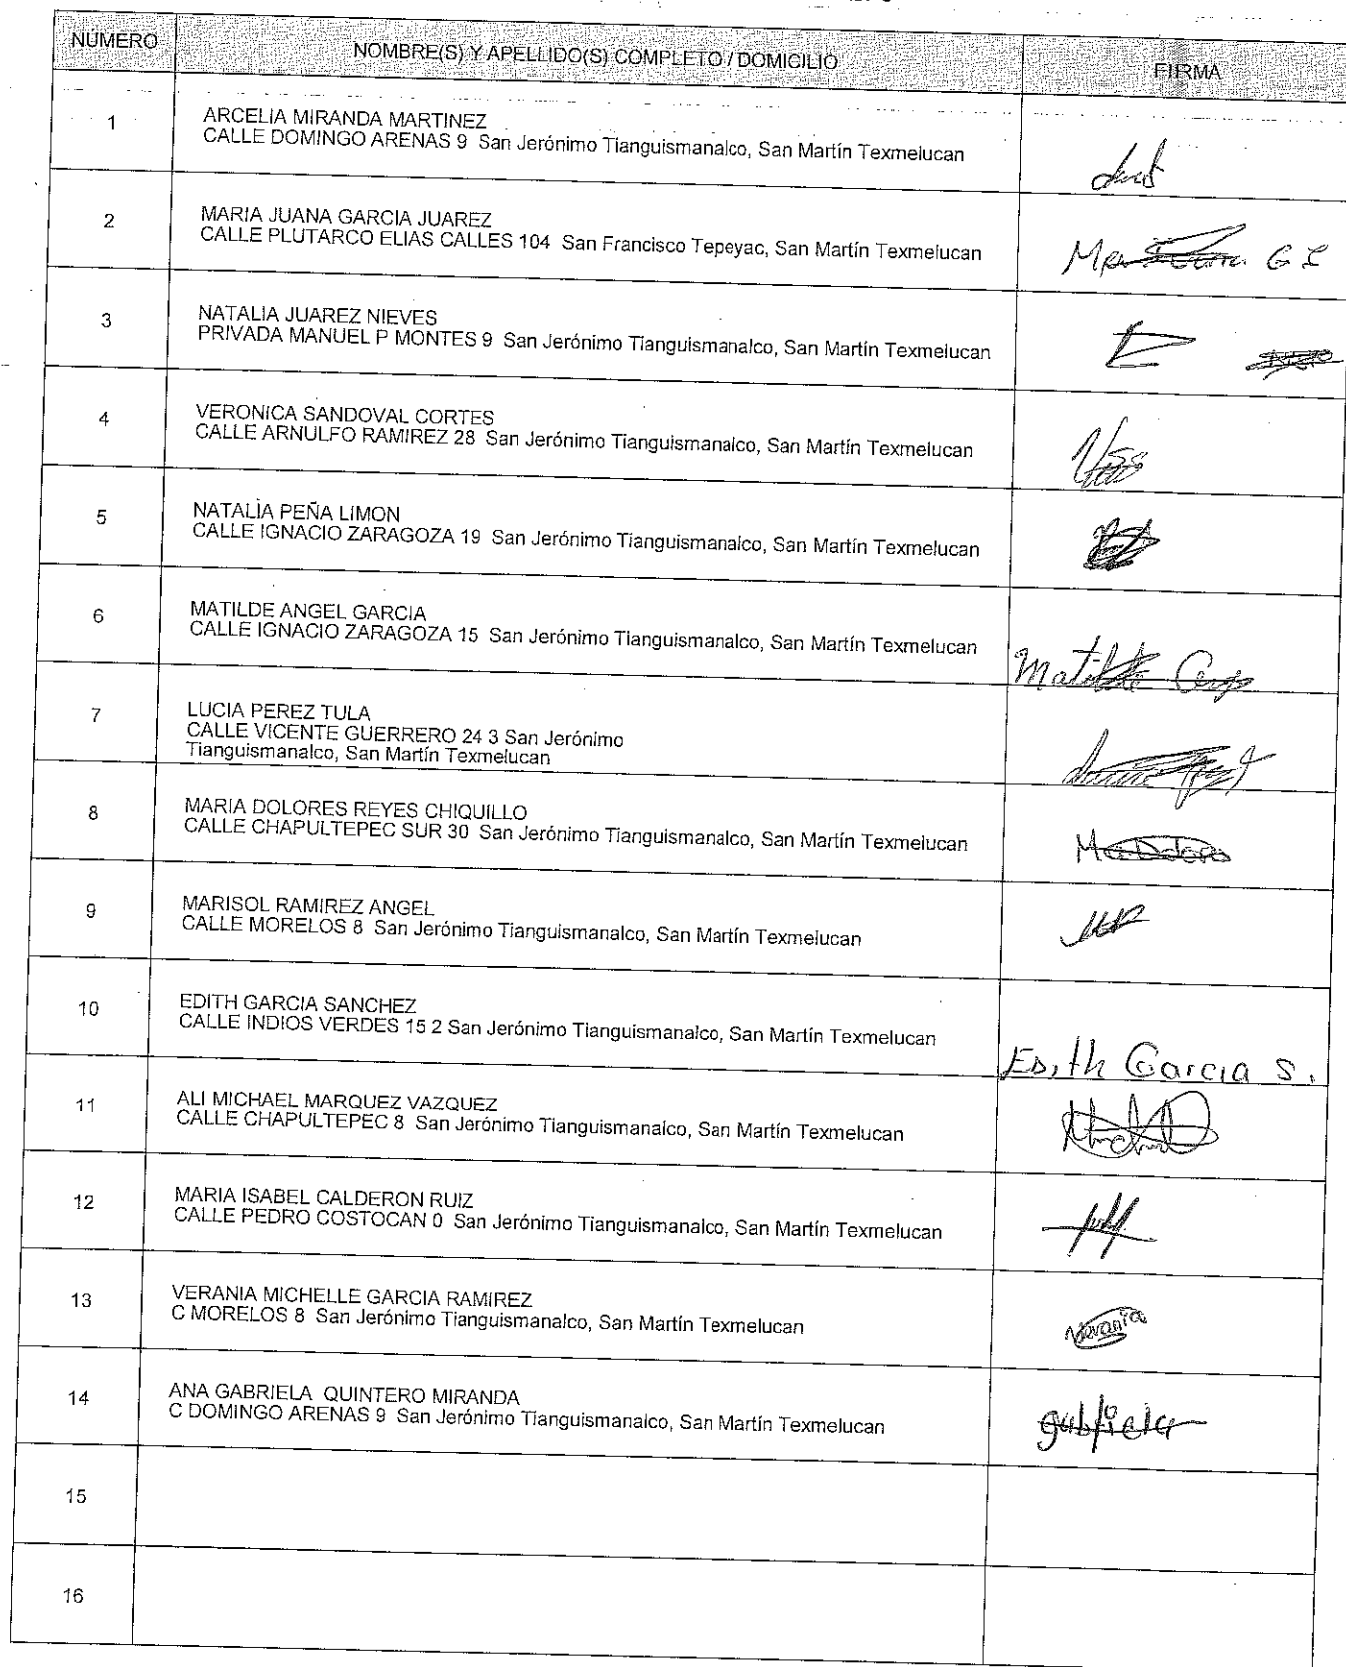 NÚMERO
NOMBRE(S) Y APELLIDO(S) COMPLETO / DOMICILIO
FIRMA
1
ARCELIA MIRANDA MARTINEZ
CALLE DOMINGO ARENAS 9 San Jerónimo Tianguismanalco, San Martín Texmelucan
2
MARIA JUANA GARCIA JUAREZ
CALLE PLUTARCO ELIAS CALLES 104 San Francisco Tepeyac, San Martín Texmelucan
3
NATALIA JUAREZ NIEVES
PRIVADA MANUEL P MONTES 9 San Jerónimo Tianguismanalco, San Martín Texmelucan
4
VERONICA SANDOVAL CORTES
CALLE ARNULFO RAMIREZ 28 San Jerónimo Tianguismanalco, San Martín Texmelucan
5
NATALIA PEÑA LIMON
CALLE IGNACIO ZARAGOZA 19 San Jerónimo Tianguismanalco, San Martín Texmelucan
6
MATILDE ANGEL GARCIA
CALLE IGNACIO ZARAGOZA 15 San Jerónimo Tianguismanalco, San Martín Texmelucan
Matilde
7
LUCIA PEREZ TULA
CALLE VICENTE GUERRERO 24 3 San Jerónimo
Tianguismanalco, San Martín Texmelucan
8
MARIA DOLORES REYES CHIQUILLO
CALLE CHAPULTEPEC SUR 30 San Jerónimo Tianguismanalco, San Martín Texmelucan
9
MARISOL RAMIREZ ANGEL
CALLE MORELOS 8 San Jerónimo Tianguismanalco, San Martín Texmelucan
10
EDITH GARCIA SANCHEZ
CALLE INDIOS VERDES 15 2 San Jerónimo Tianguismanalco, San Martín Texmelucan
EDith Garcia S.
11
ALI MICHAEL MARQUEZ VAZQUEZ
CALLE CHAPULTEPEC 8 San Jerónimo Tianguismanalco, San Martín Texmelucan
12
MARIA ISABEL CALDERON RUIZ
CALLE PEDRO COSTOCAN 0 San Jerónimo Tianguismanalco, San Martín Texmelucan
13
VERANIA MICHELLE GARCIA RAMIREZ
C MORELOS 8 San Jerónimo Tianguismanalco, San Martín Texmelucan
Verania
14
ANA GABRIELA QUINTERO MIRANDA
C DOMINGO ARENAS 9 San Jerónimo Tianguismanalco, San Martín Texmelucan
gabriela
15
16